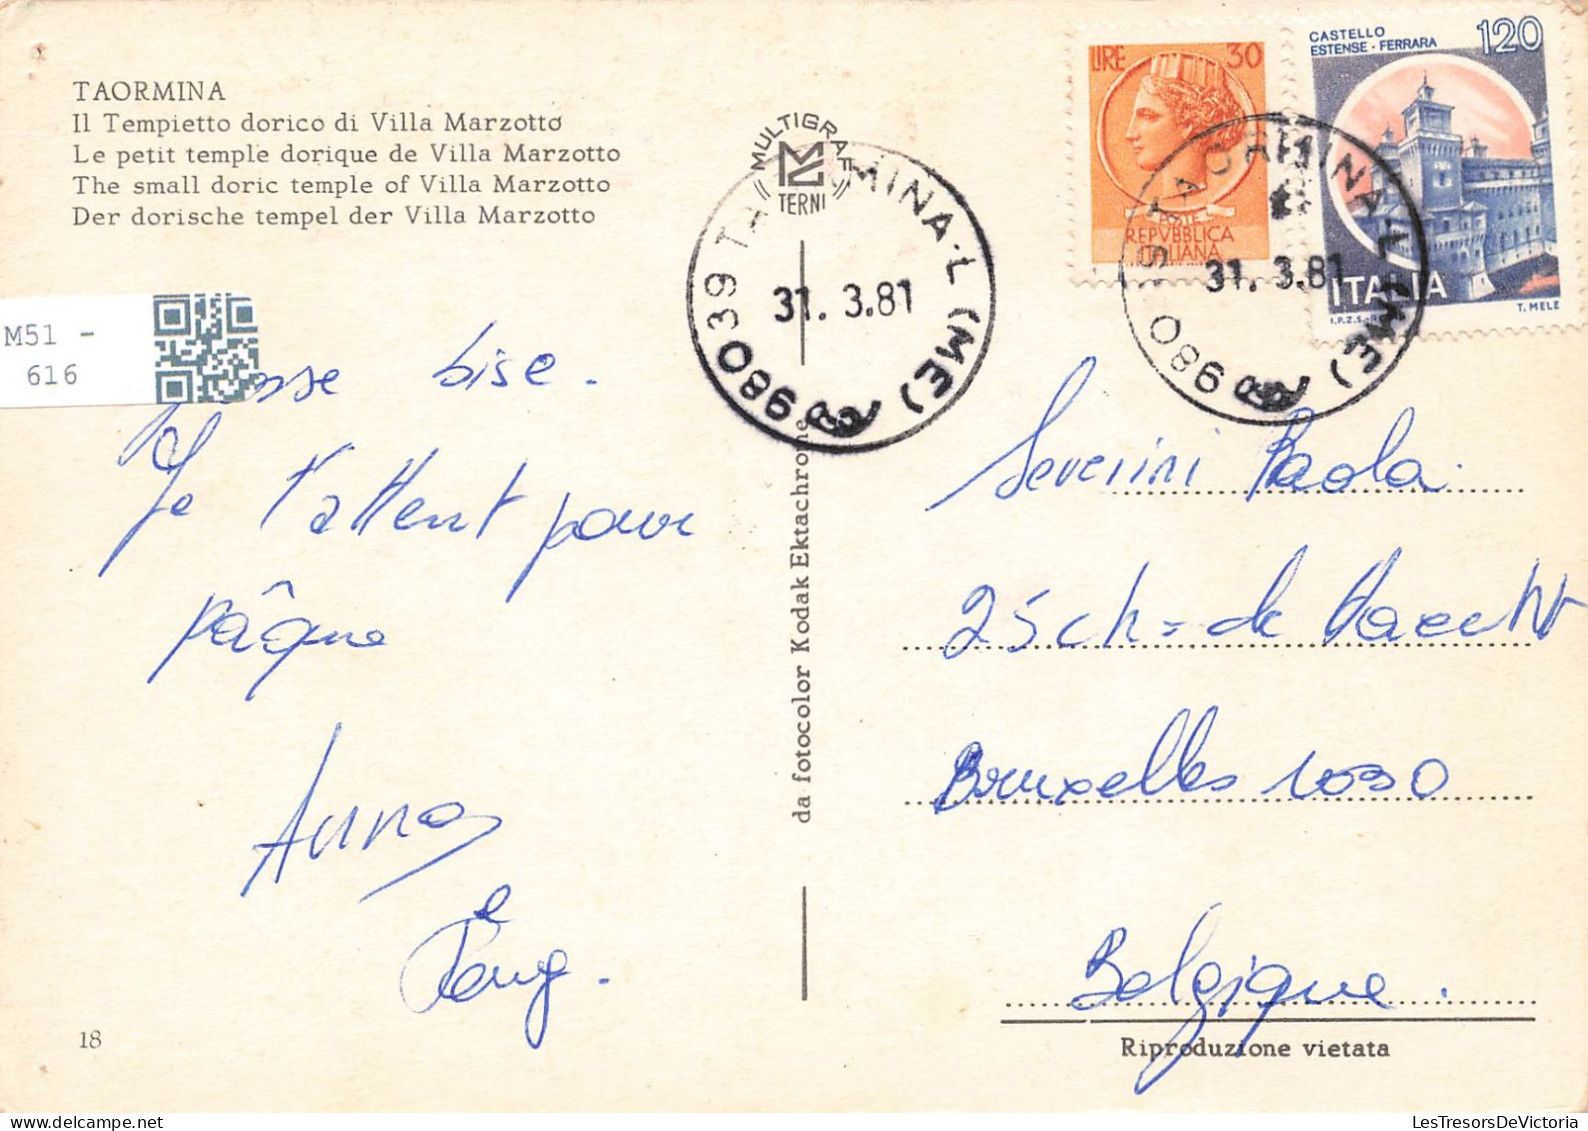 TAORMINA
Il Tempietto dorico di Villa Marzotto
Le petit temple dorique de Villa Marzotto
The small doric temple of Villa Marzotto
Der dorische tempel der Villa Marzotto
MULTIGRAF
TERNI
98039 TAORMINA·L (ME)
31. 3.81
LIRE 30
POSTE
REPVBBLICA
ITALIANA
CASTELLO
ESTENSE - FERRARA
120
ITALIA
I.P.Z.S.-R
T. MELE
TAORMINA·L (ME)
31. 3.81
M51 -
616
bise.
Je t'attent pour
pâque
Anna
da fotocolor Kodak Ektachrome
Severini Paola.
25 ch = de Haecht
Bruxelles 1030
Belgique.
18
Riproduzione vietata
LesTresorsDeVictoria